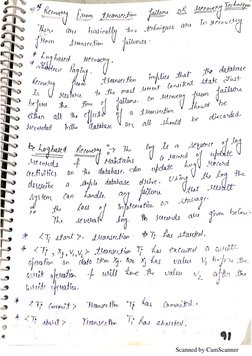 * Recovery from transaction failure OR recovery Technique
There are basically two techniques are in recovery
from transaction failures.
* Log based recovery
* Shadow Paging.
Recovery from transaction implies that the database
is restored to the most recent consistent state just
before the time of failure. on recovery from failure
either all the effects of a transaction should be
recorded in the database or all should be discarded.
Log based Recovery :-> The log is a sequence of log
records & maintains a record of update
activities on the database. An update log record
describe a single database write. Using the log the
system can handle any failure that result
the loss of information on storage.
The several log records are given below
* <Ti start> transaction Ti has started.
* Transaction Ti has executed a write
operation on data item Xj. Xj has value V1 before the
write operation & will have the value V2 after the
write operation.
* <Ti Commit> Transaction Ti has commited.
* <Ti abort> Transaction Ti has aborted.
91
Scanned by CamScanner